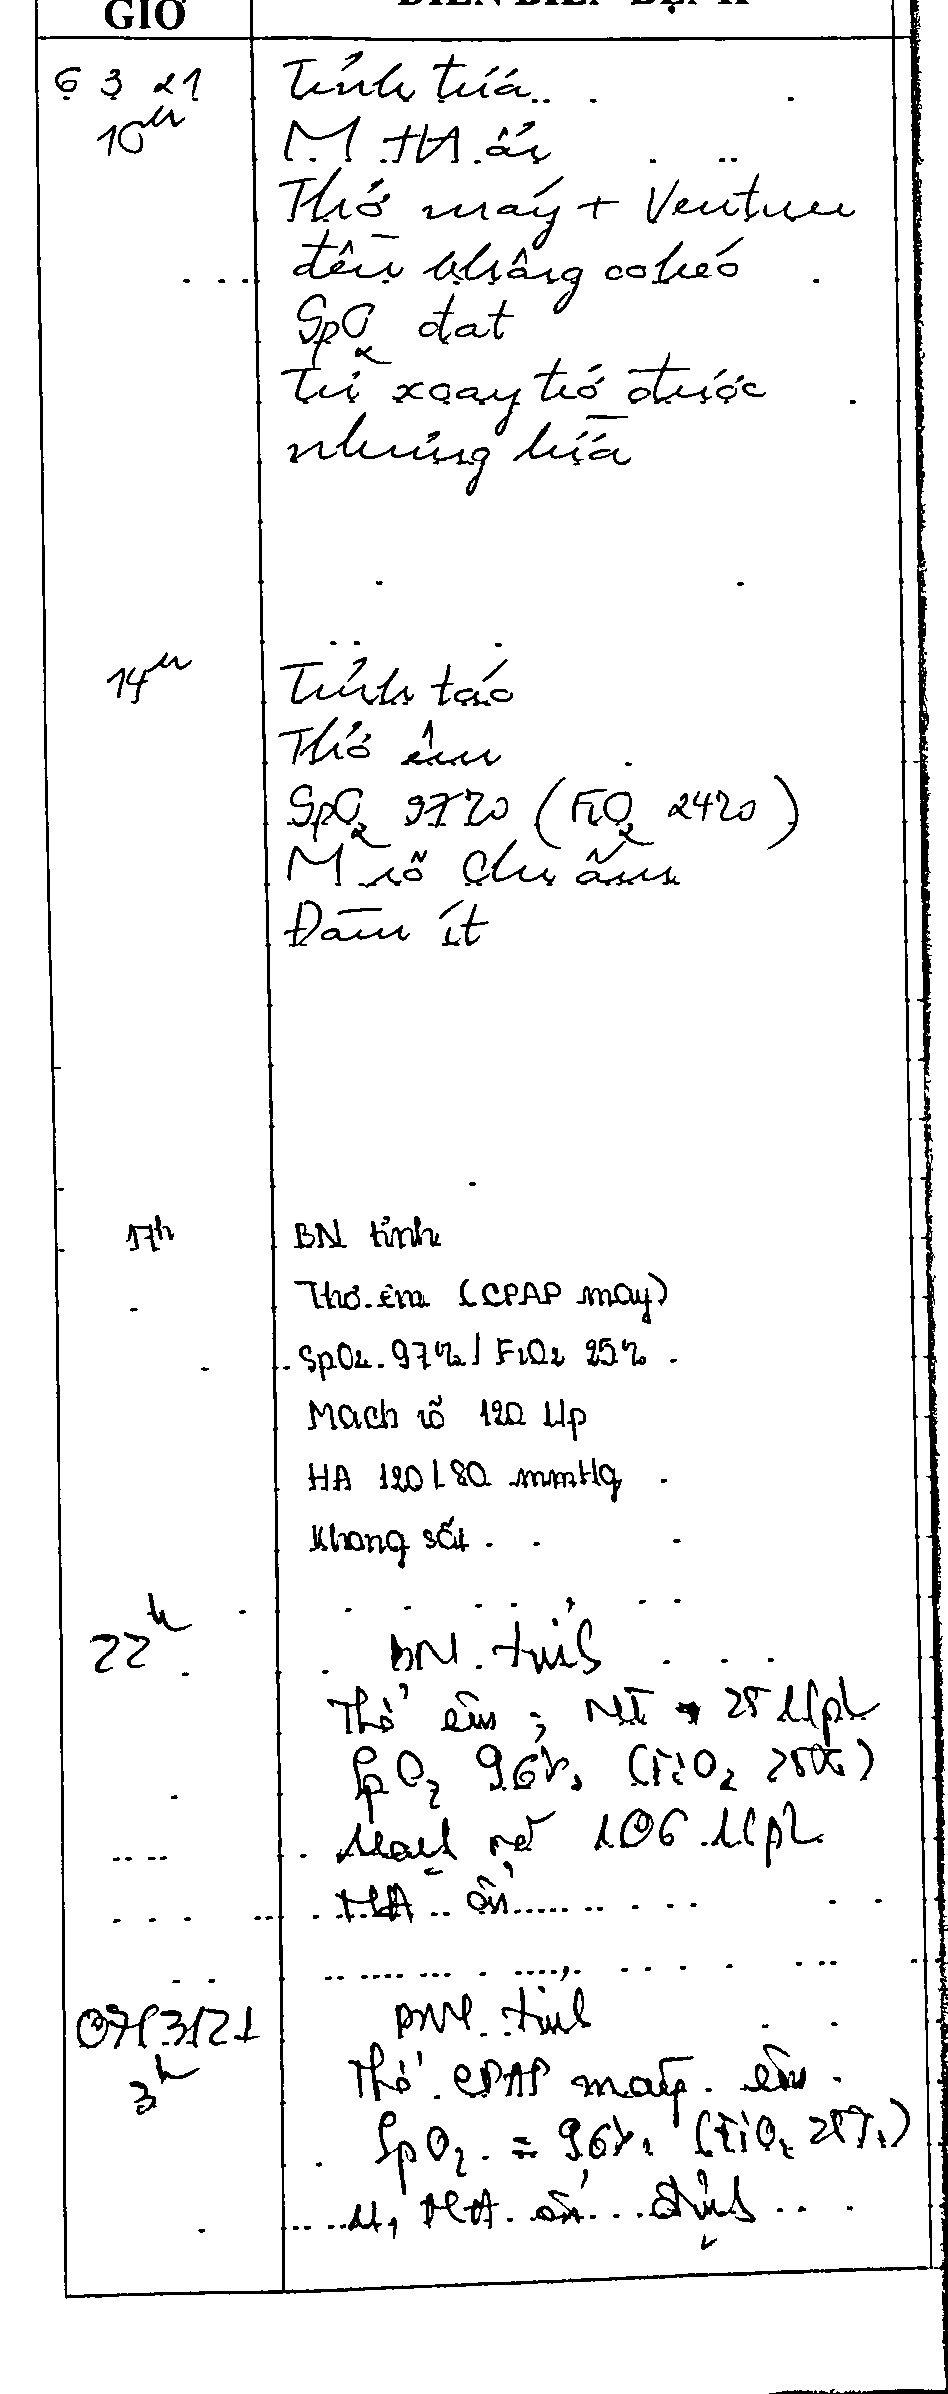 GIỜ DIỄN BIẾN BỆNH
6 3 21 Tỉnh
10h M. HA. ổn
Thở máy + Ventury
đều không co kéo
SpO2 đạt
Tự xoay trở được
nhưng
14h Tỉnh táo
Thở êm
SpO2 97% (FiO2 24%)
M rõ Chi ấm
Đàm ít
17h BN tỉnh
Thở êm (CPAP máy)
SpO2 97% / FiO2 25%
Mạch rõ 120 l/p
HA 120/80 mmHg
Không sốt
22h BN tỉnh
Thở êm ; NT 25 l/ph
SpO2 96% (FiO2 25%)
Mạch rõ 106 l/ph
HA ổn
07/3/21 BN tỉnh
3h Thở CPAP máy êm
SpO2 = 96% (FiO2 25%)
M, HA ổn định